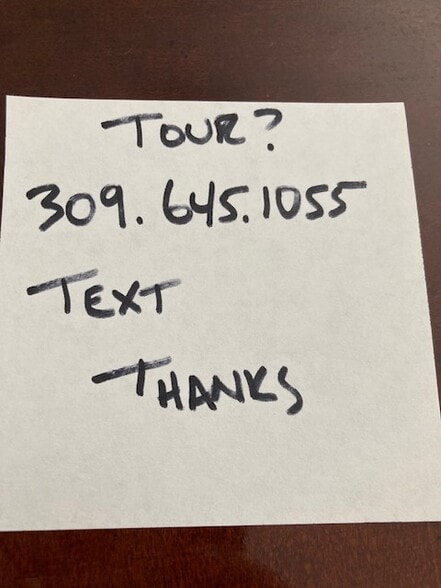 TOUR?
309.645.1055
TEXT
THANKS